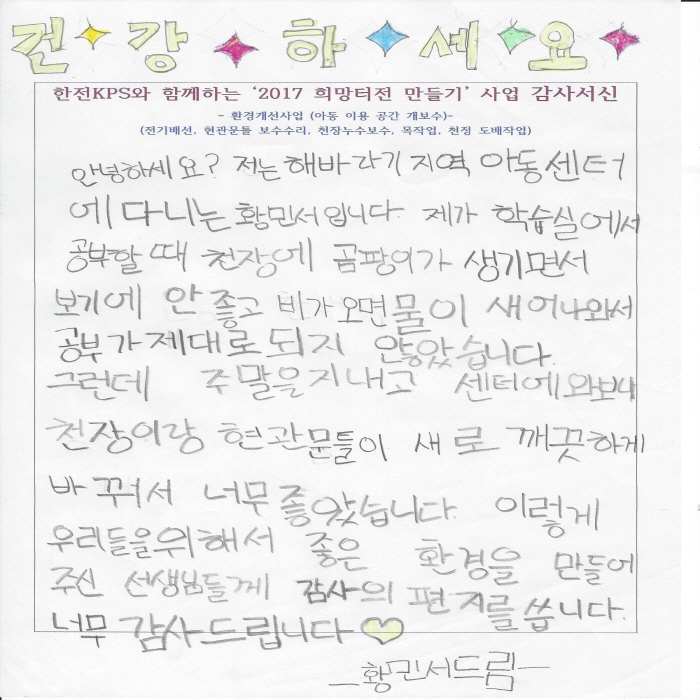 건강하세요
한전KPS와 함께하는 '2017 희망터전 만들기' 사업 감사서신
- 환경개선사업 (아동 이용 공간 개보수)-
(전기배선, 현관문틀 보수수리, 천장누수보수, 목작업, 천정 도배작업)
안녕하세요? 저는 해바라기 지역 아동센터
에 다니는 황민서입니다. 제가 학습실에서
공부할 때 천장에 곰팡이가 생기면서
보기에 안 좋고 비가 오면 물이 새어나와서
공부가 제대로 되지 않았습니다.
그런데 주말을 지내고 센터에 와보니
천장이랑 현관문틀이 새로 깨끗하게
바꿔서 너무 좋았습니다. 이렇게
우리들을 위해서 좋은 환경을 만들어
주신 선생님들께 감사의 편지를 씁니다.
너무 감사드립니다
-황민서드림-